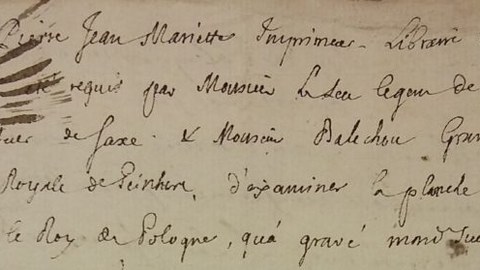 Pierre Jean Mariette Imprimeur - Libraire
été requis par Monsieur Le
de Saxe. & Monsieur Balechou Grav
Royale de Peinture, d'examiner la planche
le Roy de Pologne, qu'a gravé mond.